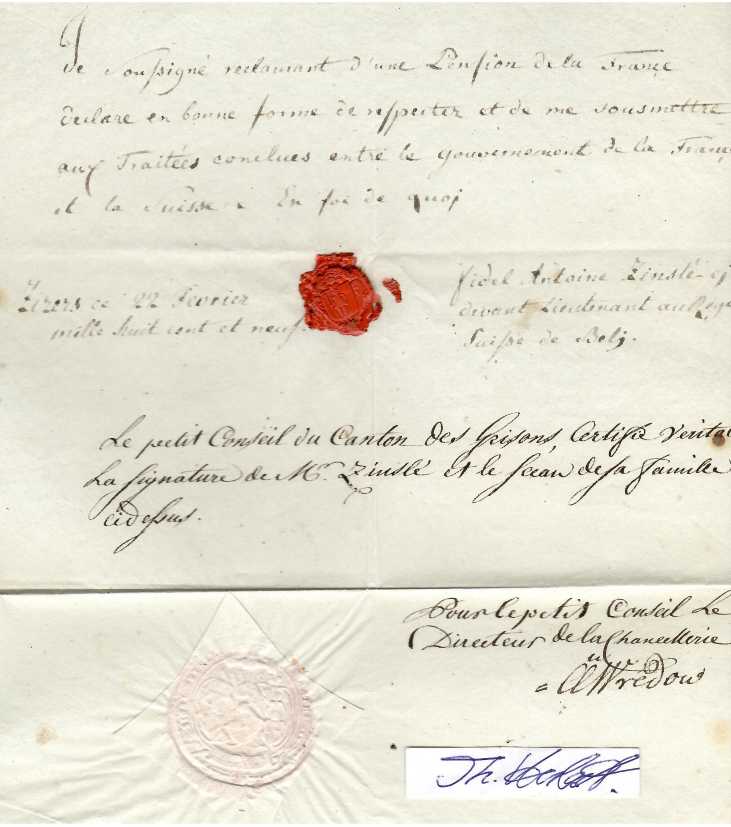 Je soussigné reclamant d'une Pension de la France
declare en bonne forme de respecter et de me sousmettre
aux Traitées conclues entre le gouvernement de la Franç
et la Suisse. En foi de quoi
Zizers ce 22 Fevrier
mille huit cent et neuf.
fidel Antoine Zinslé cj
devant Lieutenant au Reg
Suisse de Belj.
Le petit Conseil du Canton des Grisons, Certifie verita
La signature de Mr. Zinslé et le Sceau de sa famille
cidessus.
Pour le petit Conseil Le
Directeur de la Chancellerie
Th.